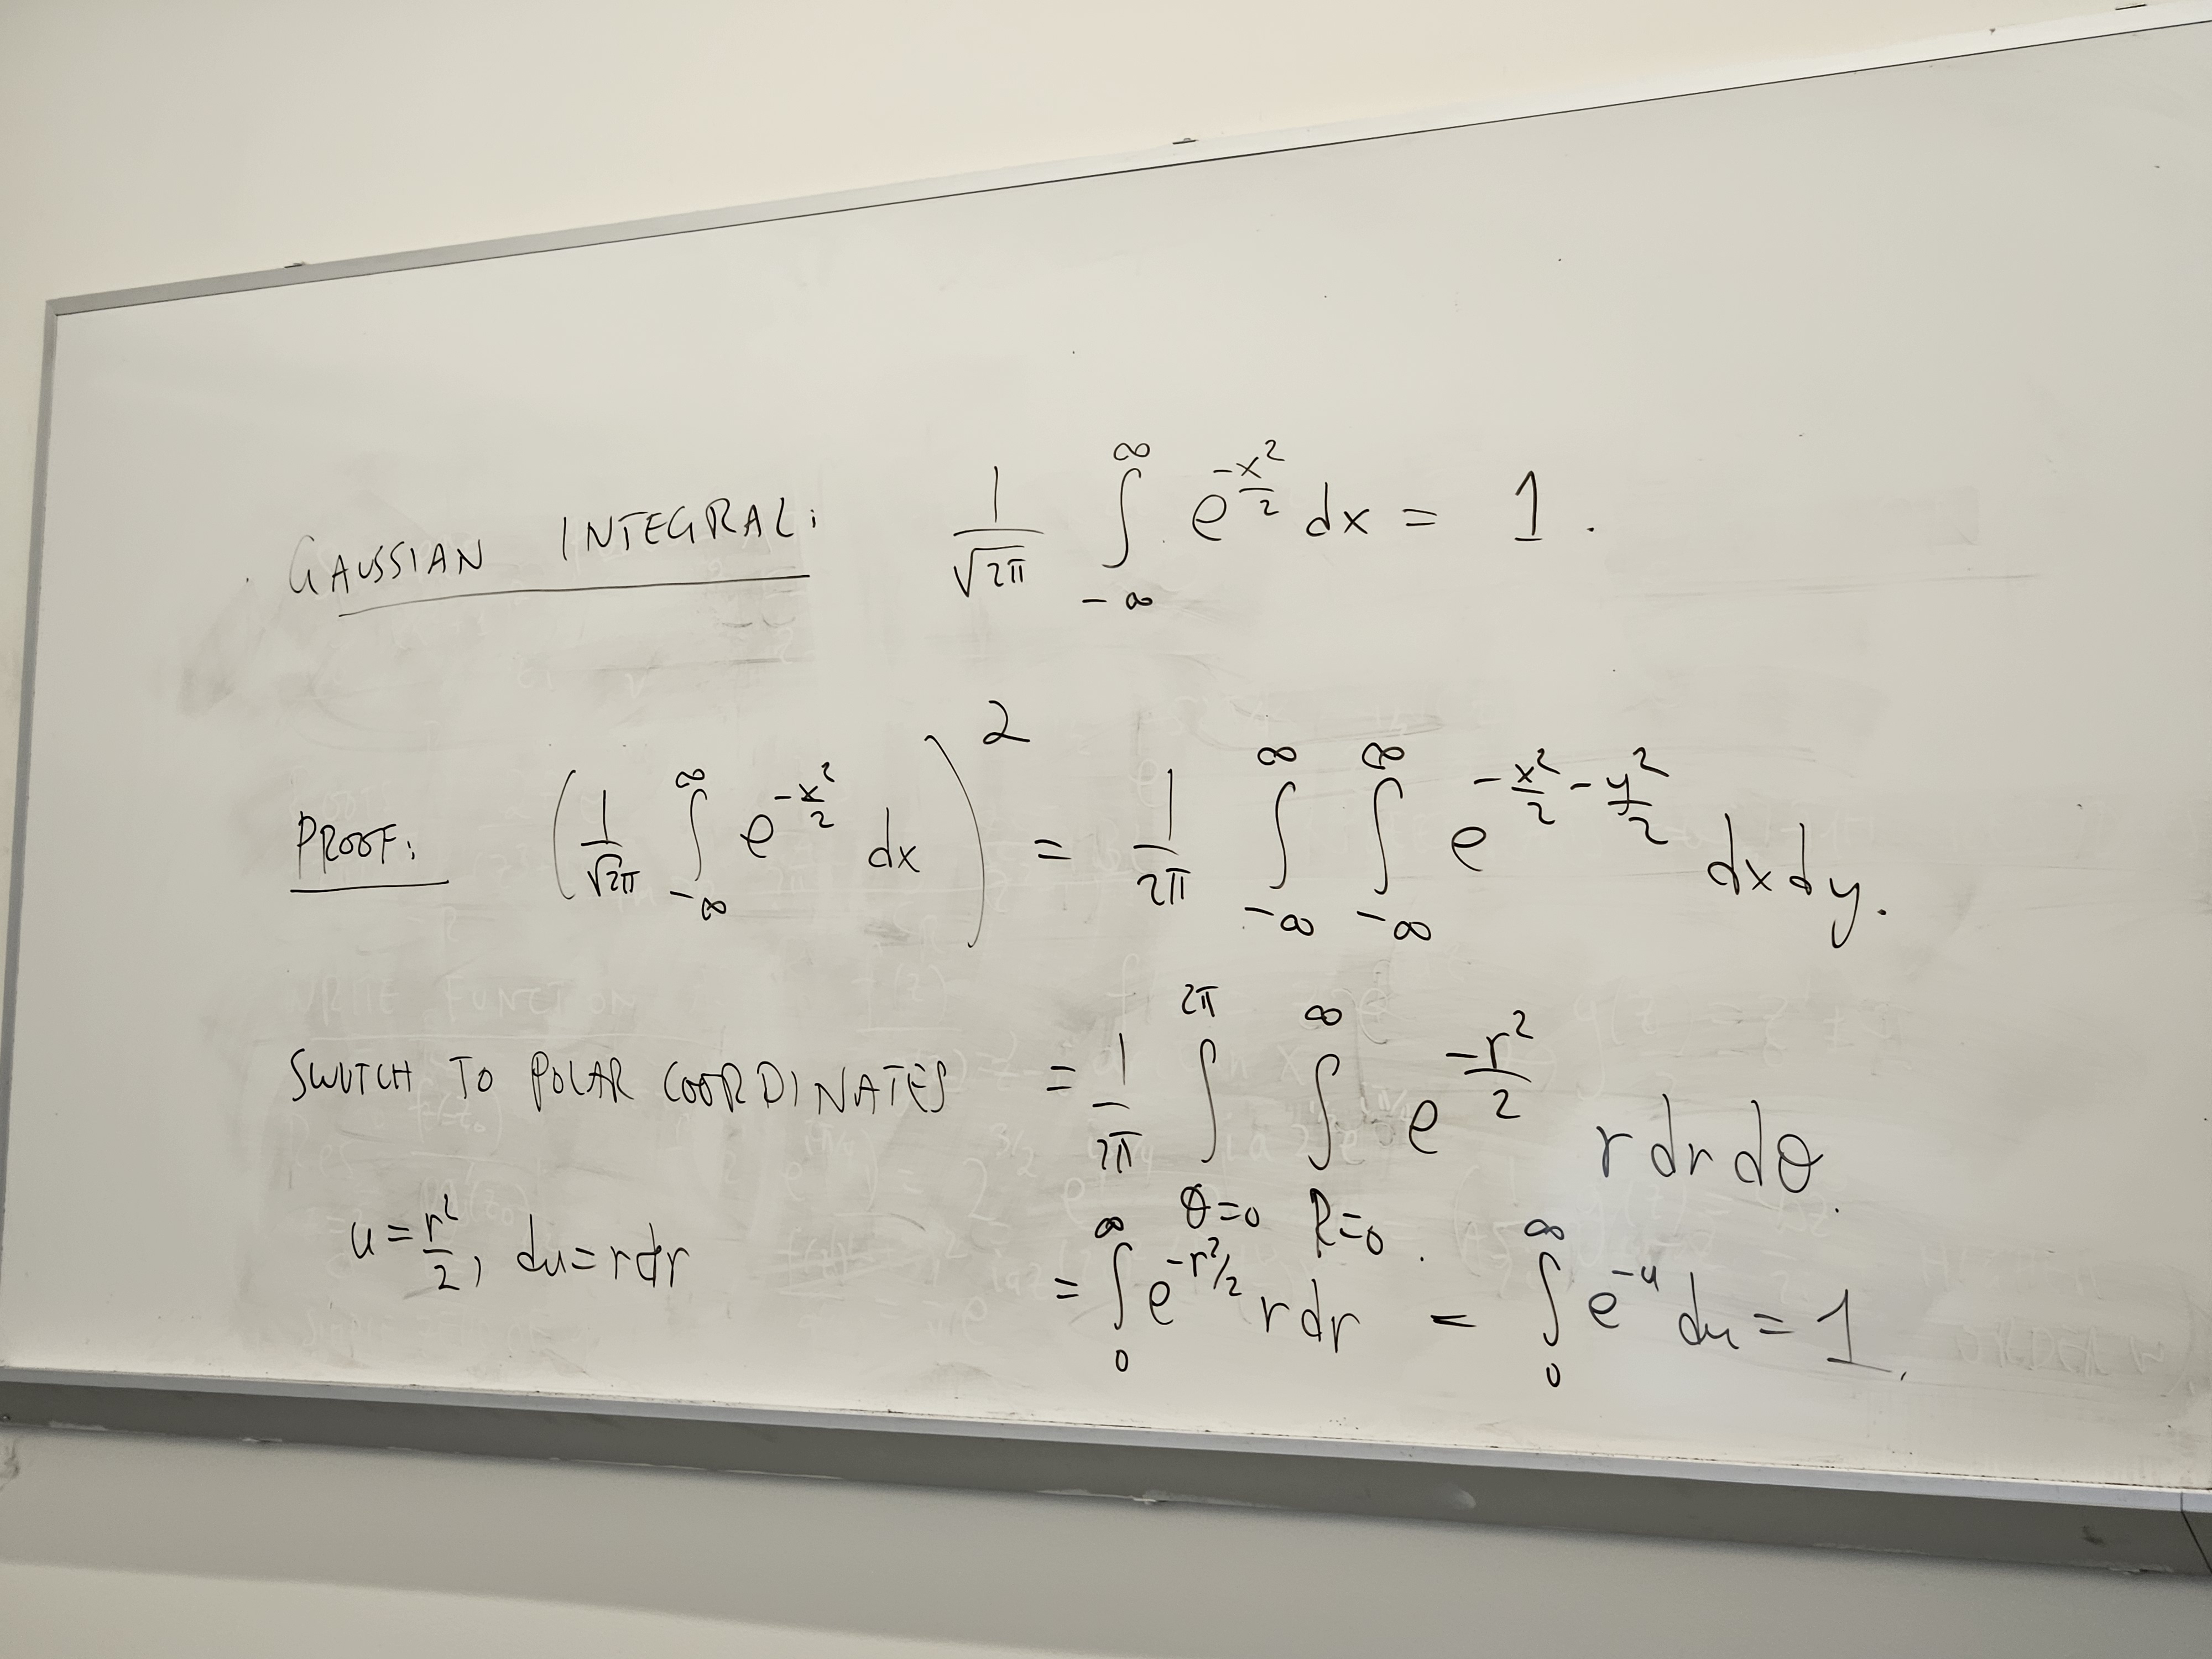 GAUSSIAN INTEGRAL: \frac{1}{\sqrt{2\pi}} \int_{-\infty}^{\infty} e^{-\frac{x^2}{2}} dx = 1.
PROOF: \left( \frac{1}{\sqrt{2\pi}} \int_{-\infty}^{\infty} e^{-\frac{x^2}{2}} dx \right)^2 = \frac{1}{2\pi} \int_{-\infty}^{\infty} \int_{-\infty}^{\infty} e^{-\frac{x^2}{2} - \frac{y^2}{2}} dx dy.
SWITCH TO POLAR COORDINATES = \frac{1}{2\pi} \int_{\theta=0}^{2\pi} \int_{R=0}^{\infty} e^{-\frac{r^2}{2}} r dr d\theta.
u = \frac{r^2}{2}, du = r dr = \int_{0}^{\infty} e^{-r^2/2} r dr = \int_{0}^{\infty} e^{-u} du = 1.